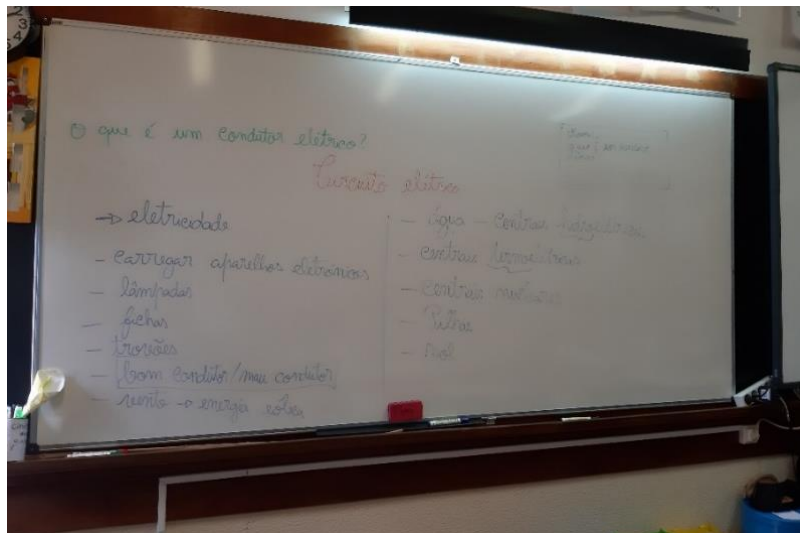 O que é um condutor elétrico?
Circuito elétrico
→ eletricidade
- carregar aparelhos eletrónicos
- lâmpadas
- fichas
- trovões
- bom condutor/mau condutor
- vento → energia eólica
- água - centrais hidroelétricas
- centrais termoelétricas
- centrais nucleares
- Pilhas
- sol